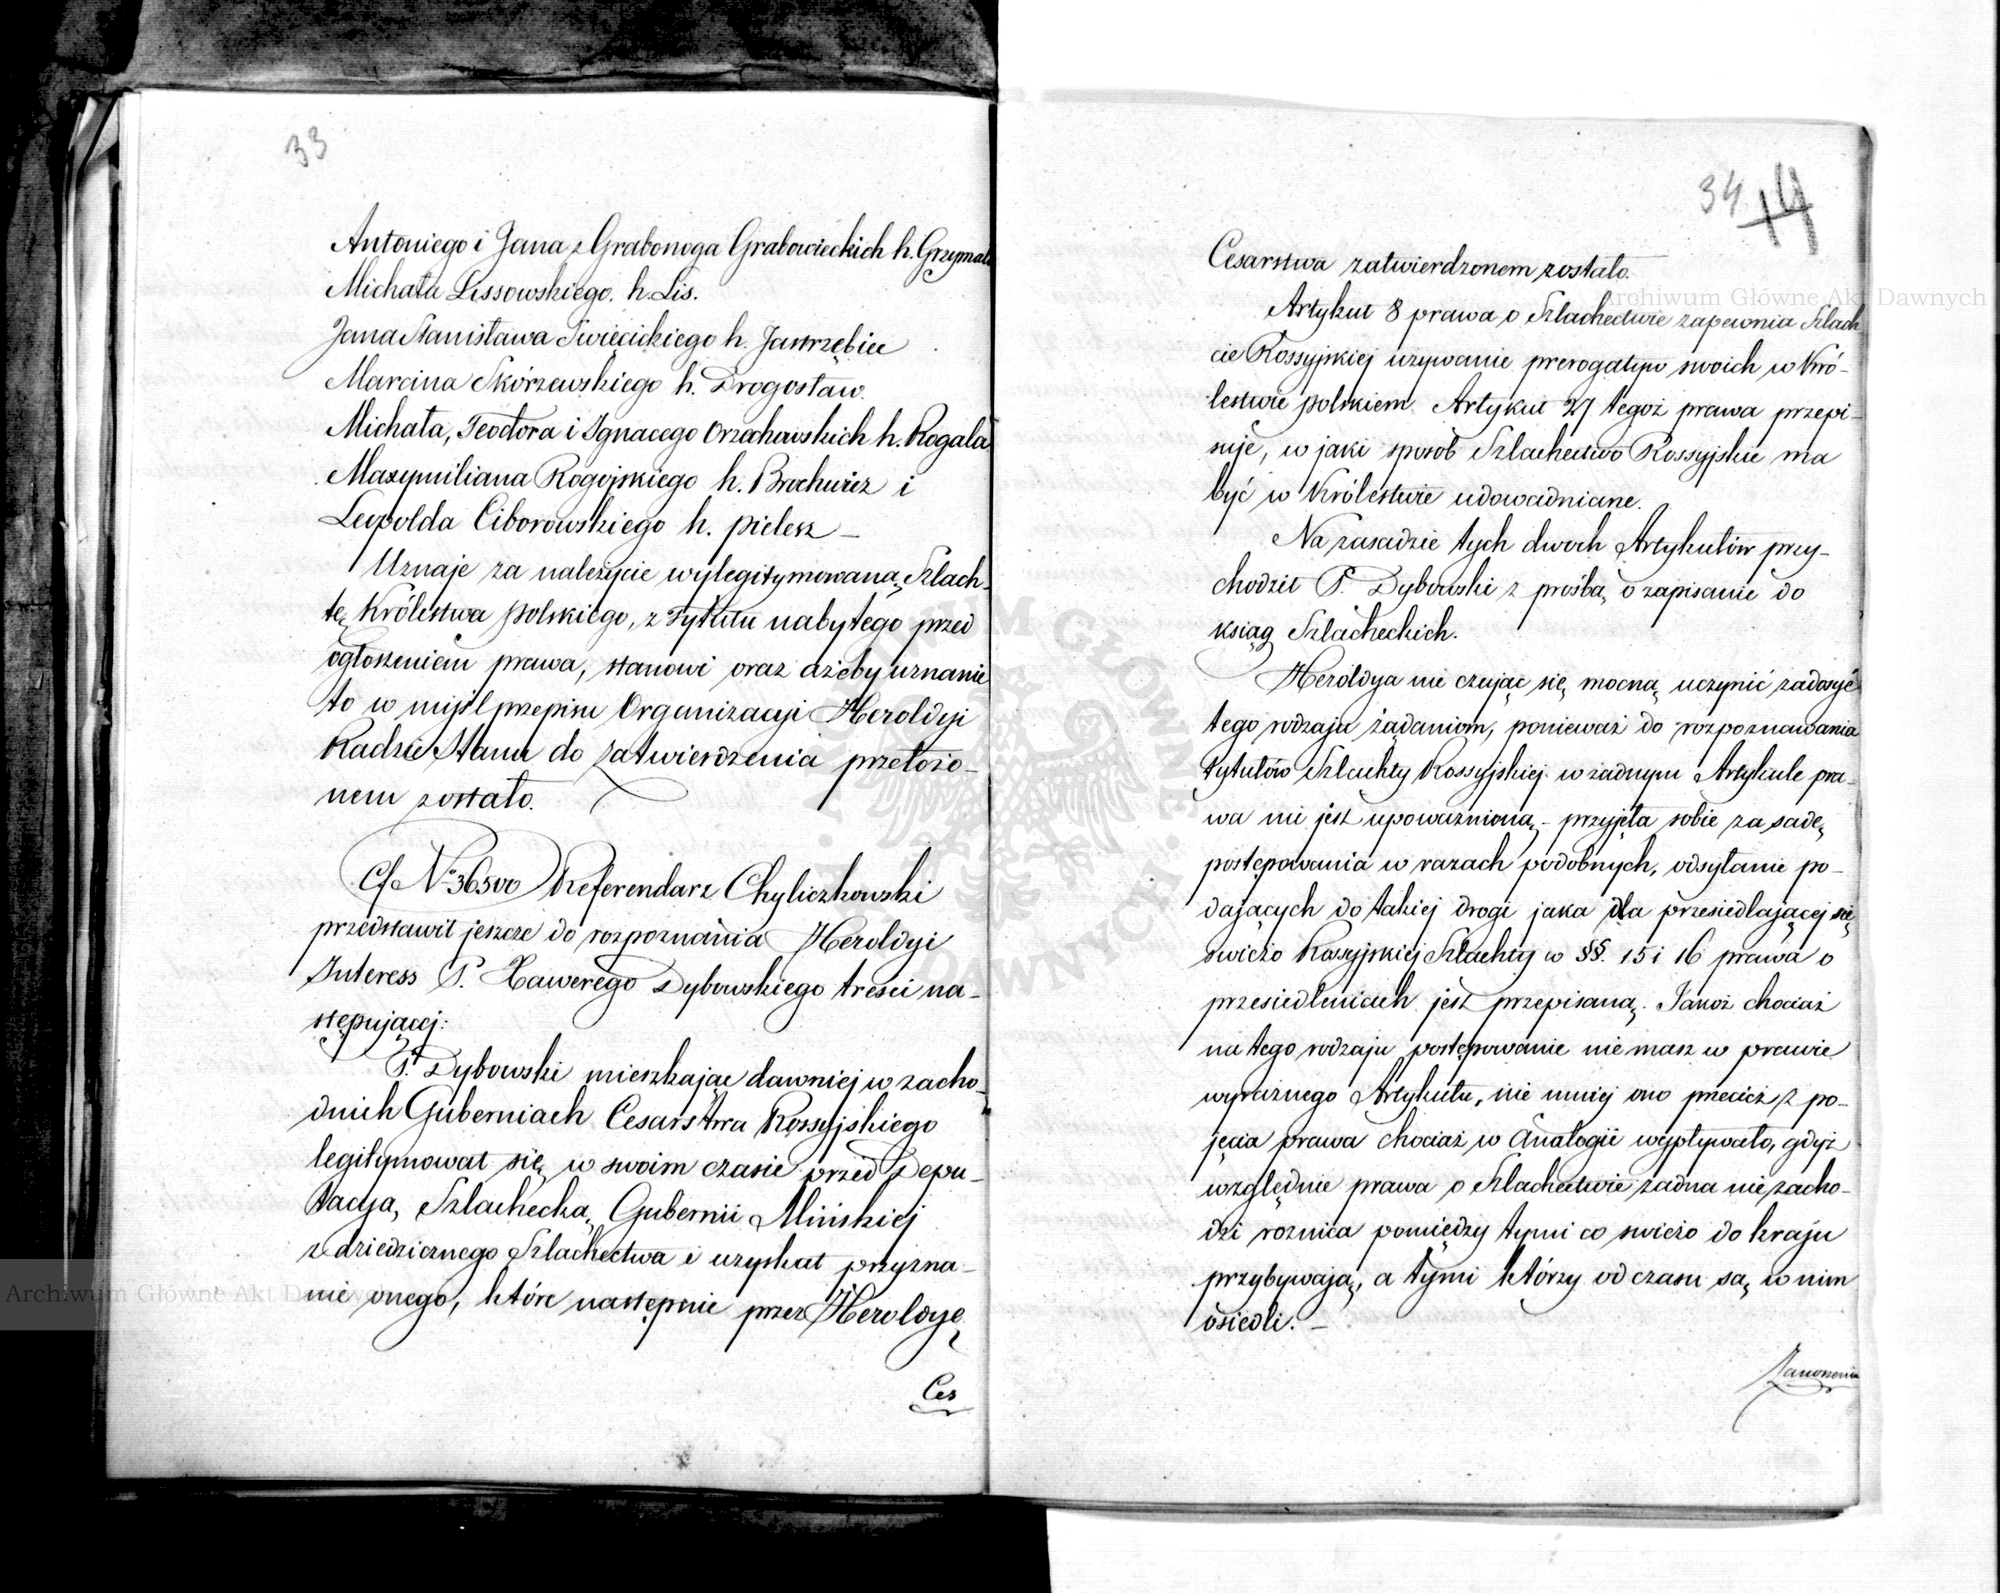 33
Antoniego i Jana z Grabonoga Grabowieckich h. Grzymała
Michała Lissowskiego. h. Lis.
Jana Stanisława Swięcickiego h. Jastrzębiec
Marcina Skórzewskiego h. Drogosław.
Michała, Teodora i Ignacego Orzechowskich h. Rogala
Maxymiliana Rogojskiego h. Brochwicz i
Leopolda Ciborowskiego h. Pielesz —
Uznaje za należycie wylegitymowaną Szlach-
tę Królestwa Polskiego, z tytułu nabytego przed
ogłoszeniem prawa, stanowi oraz ażeby uznanie
to w myśl przepisu Organizacyi Heroldyi
Radzie Stanu do zatwierdzenia przełożo-
nem zostało.
Cf N° 36500 Referendarz Chyliczkowski
przedstawił jeszcze do rozpoznania Heroldyi
Interess P. Xawerego Dybowskiego treści na-
stępującej:
P. Dybowski mieszkając dawniej w zacho-
dnich Guberniach Cesarstwa Rossyjskiego
legitymował się w swoim czasie przed Depu-
tacyą Szlachecką Gubernii Mińskiej
z dziedzicznego Szlachectwa i uzyskał przyzna-
nie onego, które następnie przez Heroldyę
Ces
34
14
Cesarstwa zatwierdzonem zostało.
Artykuł 8 prawa o Szlachectwie zapewnia Szlach
cie Rossyjskiej używanie prerogatyw swoich w Kró-
lestwie polskiem. Artykuł 27 tegoż prawa przepi-
suje, w jaki sposób Szlachectwo Rossyjskie ma
być w Królestwie udowadniane.
Na zasadzie tych dwóch Artykułów przy-
chodził P. Dybowski z prośbą o zapisanie do
ksiąg Szlacheckich.
Heroldya nie czując się mocną uczynić zadosyć
tego rodzaju żądaniom, ponieważ do rozpoznawania
tytułów Szlachty Rossyjskiej w żadnym Artykule pra-
wa nie jest upoważnioną – przyjęła sobie za sadę
postępowania w razach podobnych, odsyłanie po-
dających do takiej drogi jaka dla przesiedlającej się
świeżo Rossyjskiej Szlachty w §§. 15 i 16 prawa o
przesiedleniach jest przepisaną. Jakoż chociaż
na tego rodzaju postępowanie nie masz w prawie
wyraźnego Artykułu, nie mniej ono przecież z po-
jęcia prawa chociaż w Analogii wypływało, gdyż
względnie prawa o Szlachectwie żadna nie zacho-
dzi roznica pomiędzy tymi co świeżo do kraju
przybywają, a tymi którzy od czasu są w nim
osiedli. —
Zanoszenia
Archiwum Główne Akt Dawnych
Archiwum Główne Akt Dawnych
ARCHIWUM GŁÓWNE AKT DAWNYCH